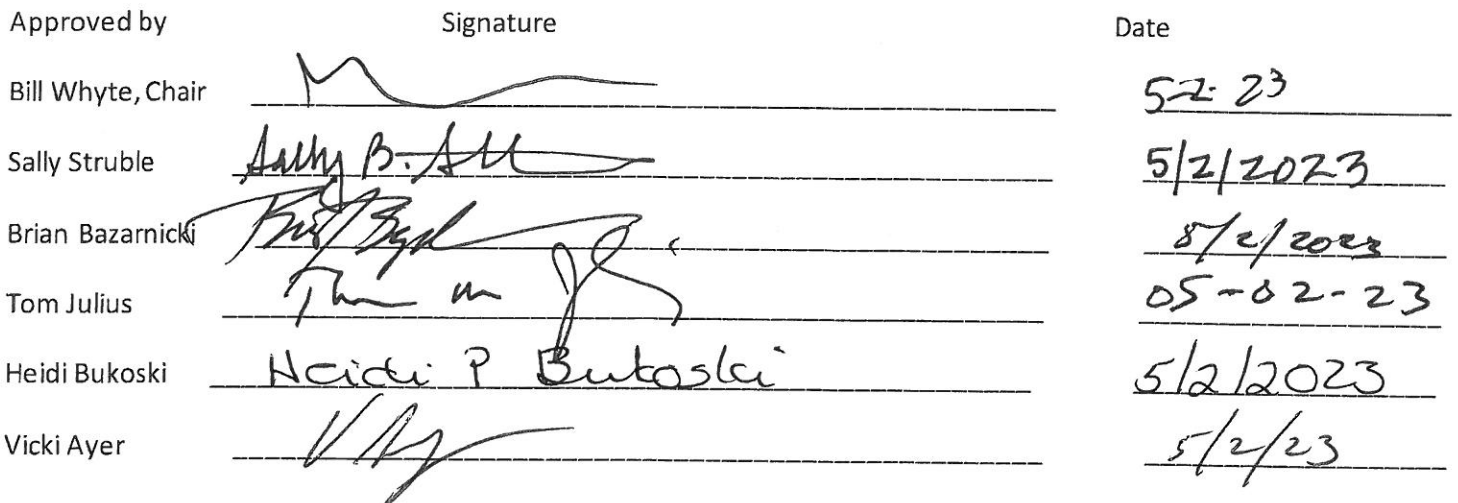 Approved by Signature Date
Bill Whyte, Chair 5-2-23
Sally Struble Sally B. 5/2/2023
Brian Bazarnicki 5/2/2023
Tom Julius 05-02-23
Heidi Bukoski Heidi P Bukoski 5/2/2023
Vicki Ayer V Ay 5/2/23